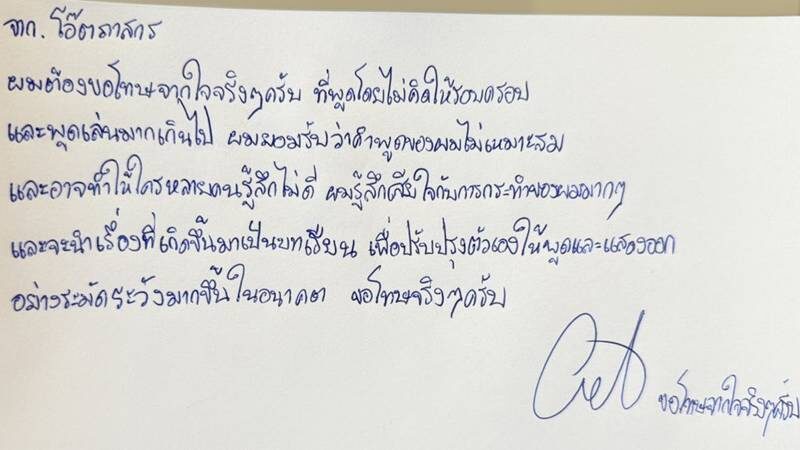 จาก. โอ๊ตภาสกร
ผมต้องขอโทษจากใจจริงๆครับ ที่พูดโดยไม่คิดให้รอบครอบ
และพูดเล่นมากเกินไป ผมยอมรับว่าคำพูดของผมไม่เหมาะสม
และอาจทำให้ใครหลายคนรู้สึกไม่ดี ผมรู้สึกเสียใจกับการกระทำของผมมากๆ
และจะนำเรื่องที่เกิดขึ้นมาเป็นบทเรียน เพื่อปรับปรุงตัวเองให้พูดและแสดงออก
อย่างระมัดระวังมากขึ้นในอนาคต ขอโทษจริงๆครับ
ขอโทษจากใจจริงๆครับ